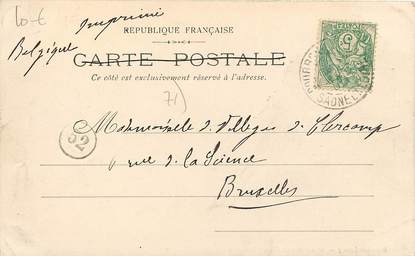 10-€
Imprimé
Belgique
RÉPUBLIQUE FRANÇAISE
CARTE POSTALE
Ce côté est exclusivement réservé à l'adresse.
71)
5
SAÔNE
52
Mademoiselle de Villegas de Clercamp
rue de la Science
Bruxelles